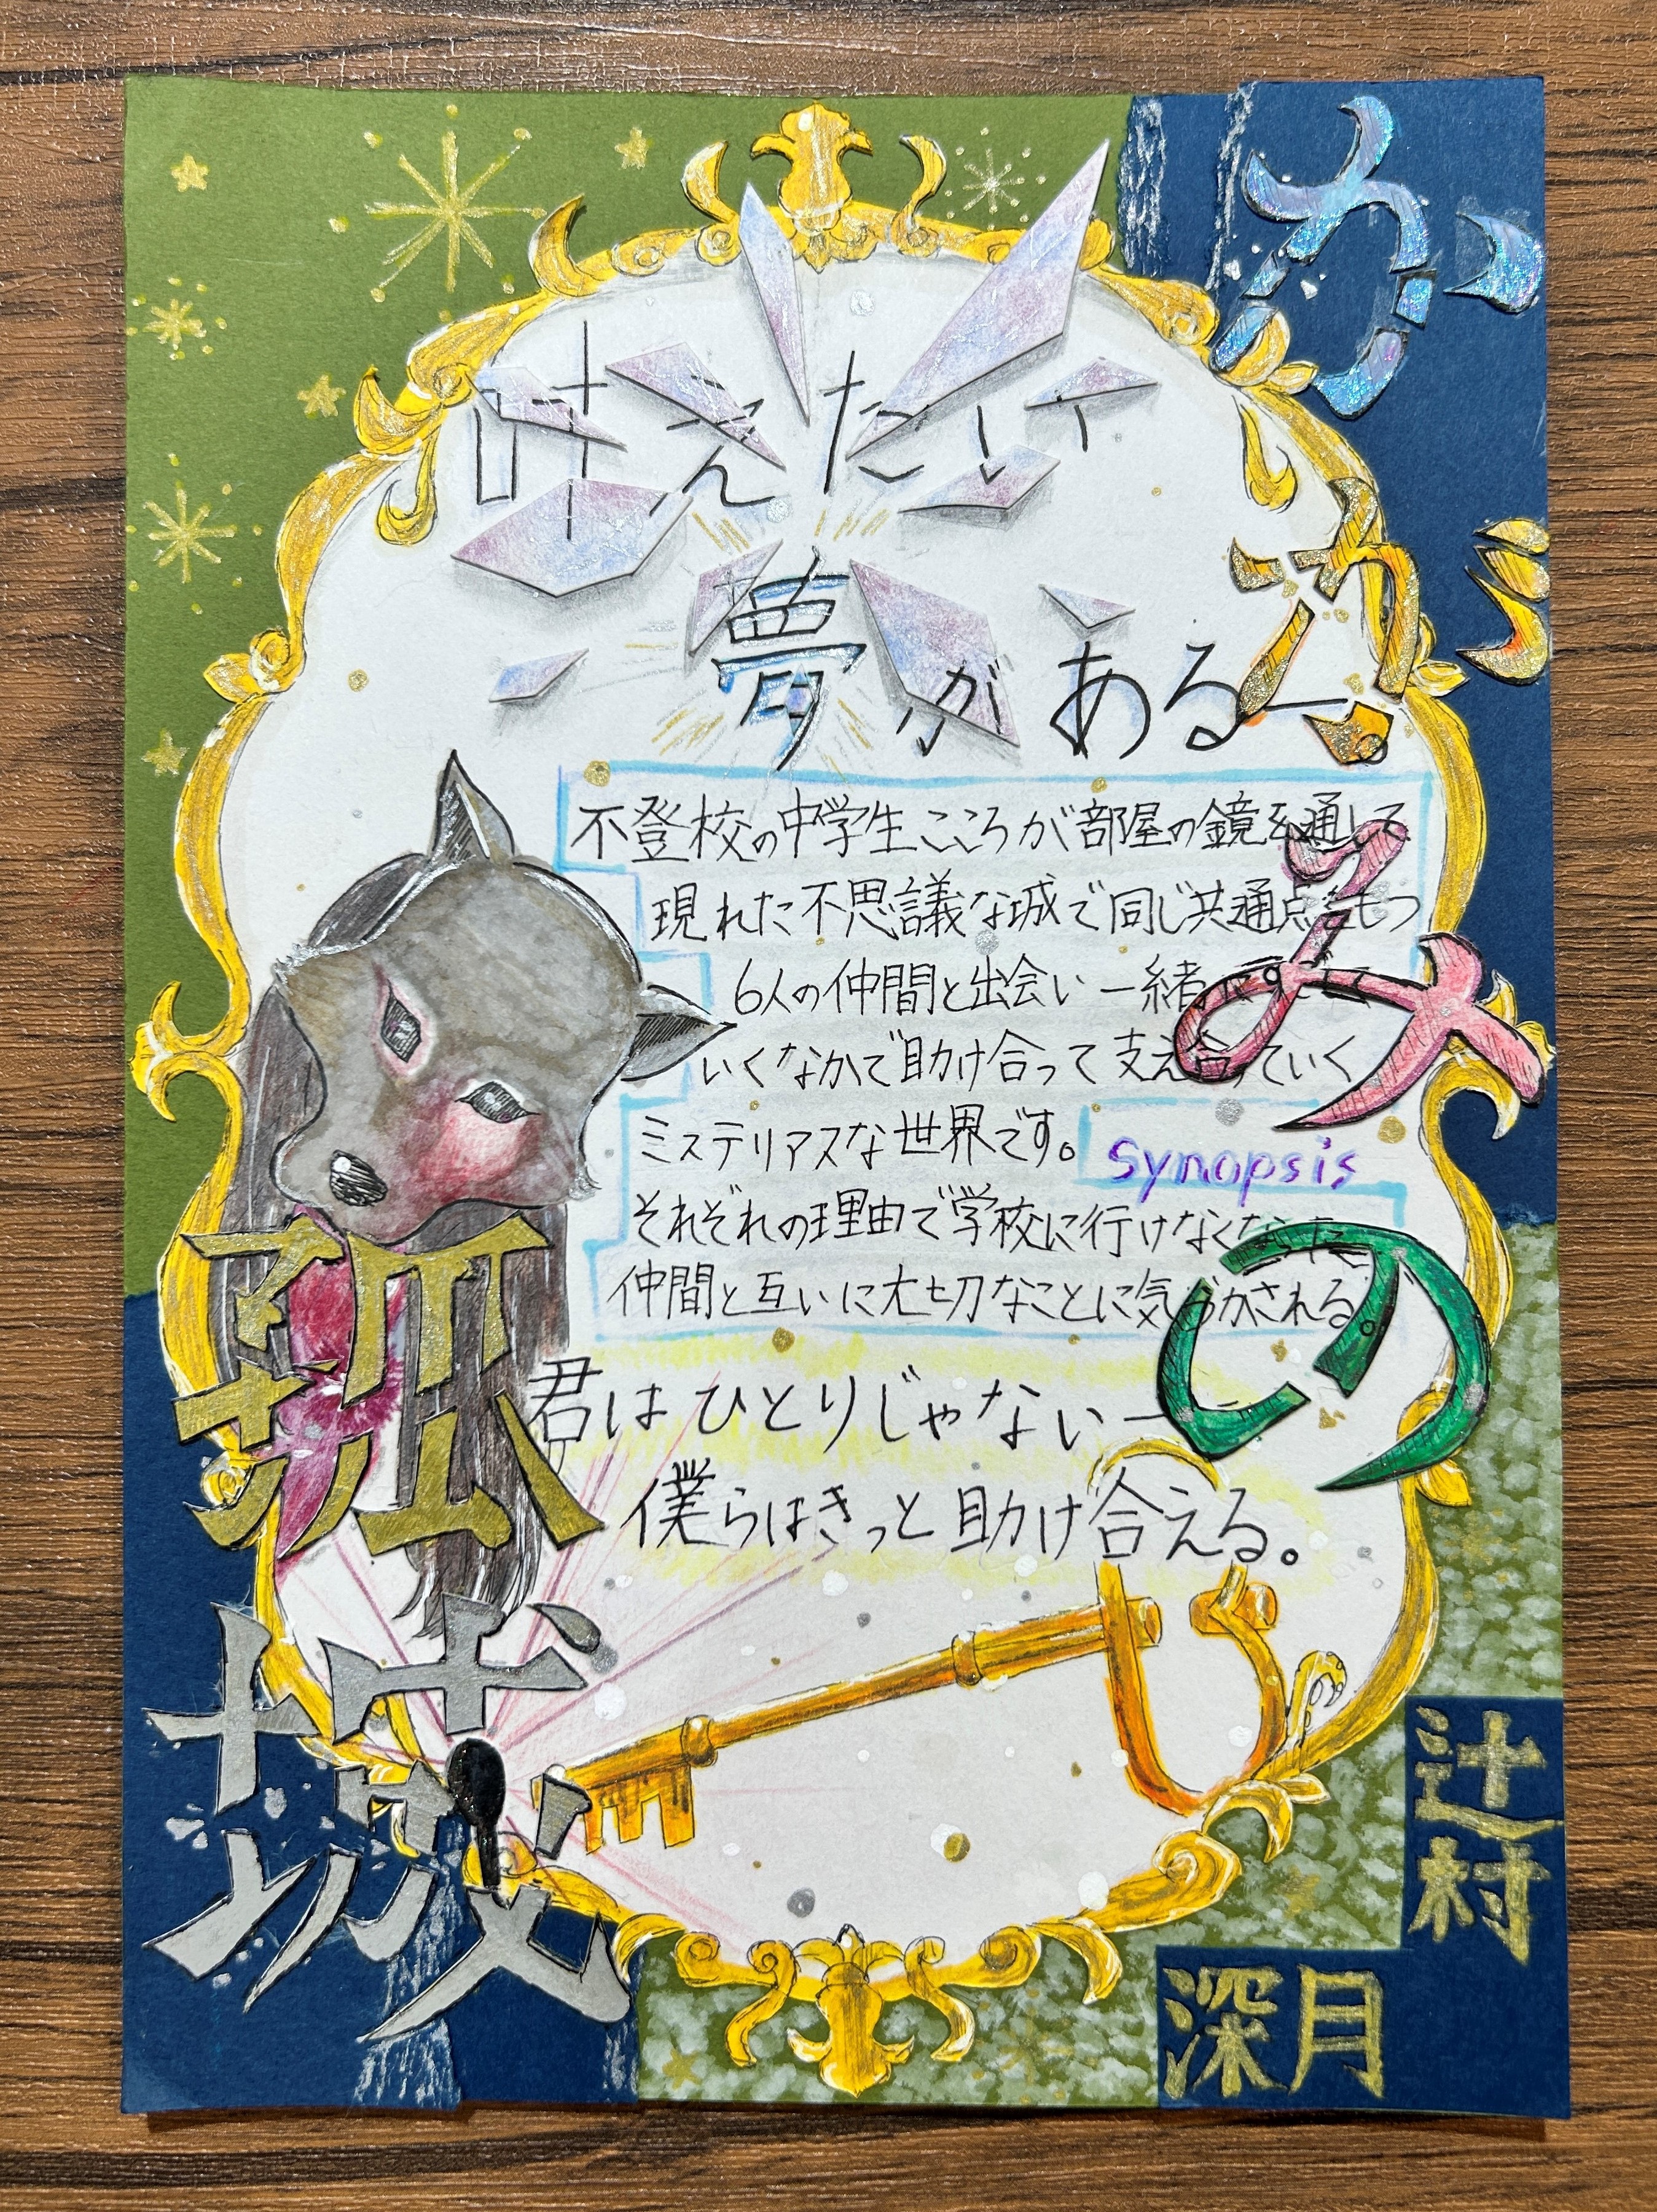 かがみの
孤城
叶えたい
夢がある―。
不登校の中学生こころが部屋の鏡を通して
現れた不思議な城で同じ共通点をもつ
6人の仲間と出会い一緒
いくなかで助け合って支え合っていく
ミステリアスな世界です。
Synopsis
それぞれの理由で学校に行けなくなった
仲間と互いに大切なことに気づかされる。
君はひとりじゃない―
僕らはきっと助け合える。
辻村
深月